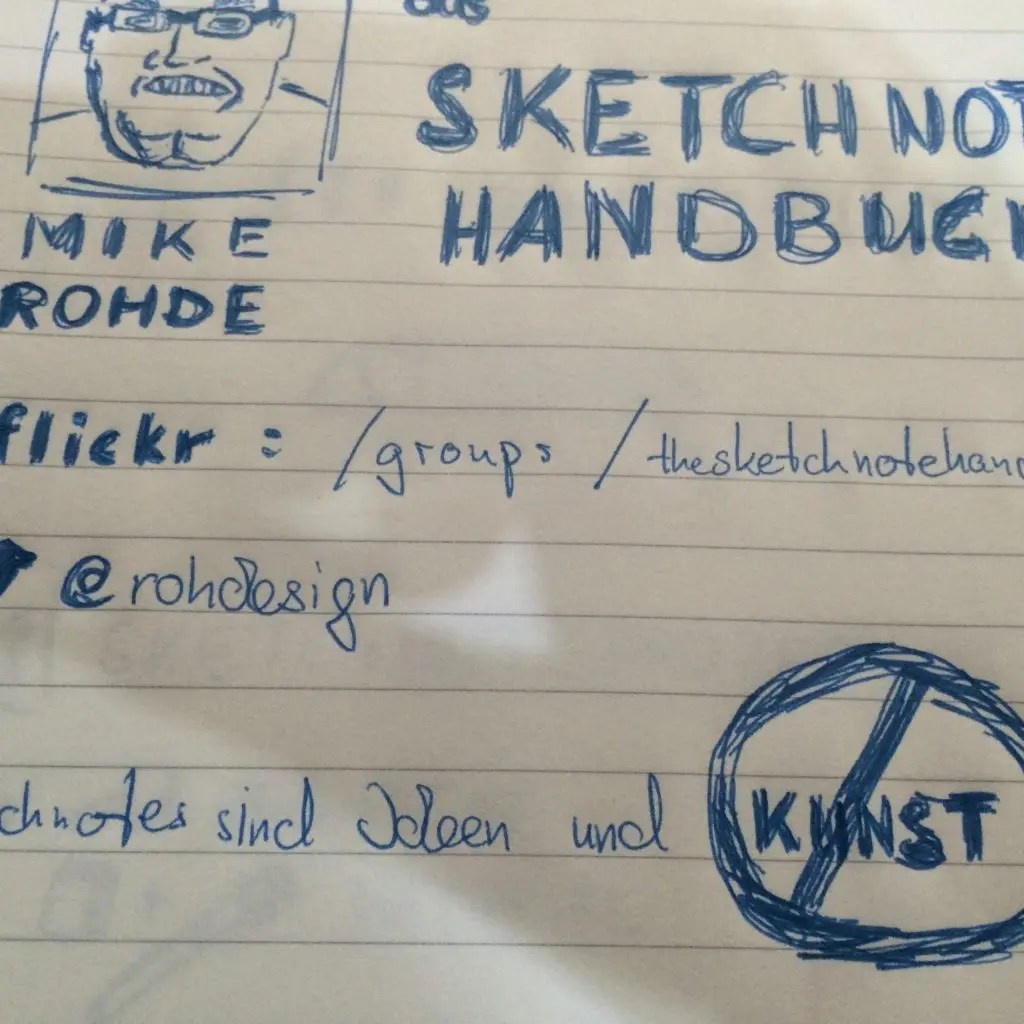 das
SKETCHNOT
HANDBUCH
MIKE
ROHDE
flickr : /groups /thesketchnotehand
@rohdesign
chnotes sind Ideen und KUNST